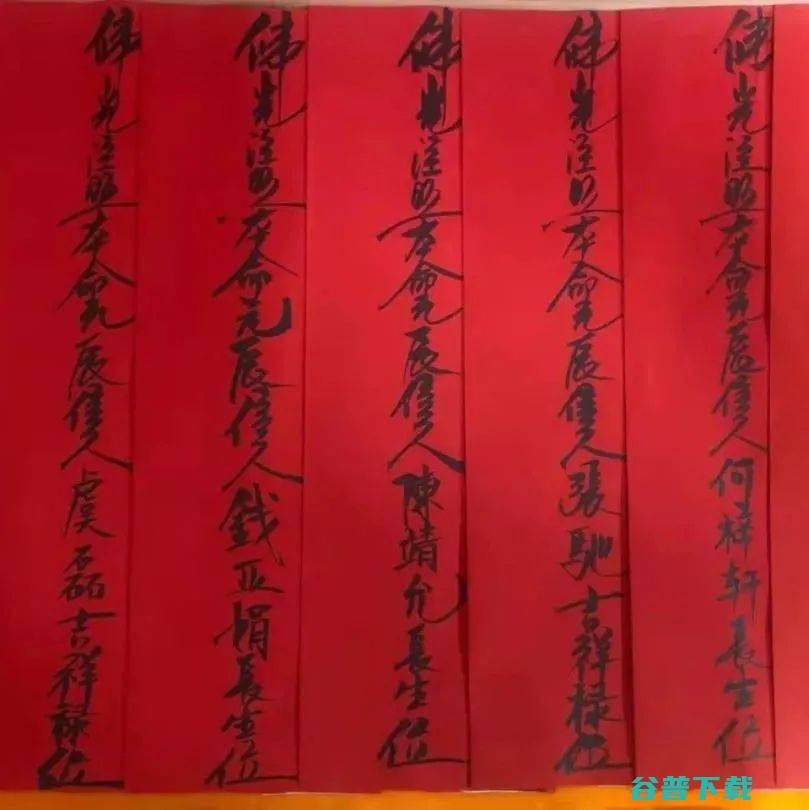 佛光注照本命元辰信人何梓轩長生位
佛光注照本命元辰信人張馳吉祥禄位
佛光注照本命元辰信人陳靖允長生位
佛光注照本命元辰信人錢正娟長生位
佛光注照本命元辰信人虞磊吉祥禄位
谷普下载